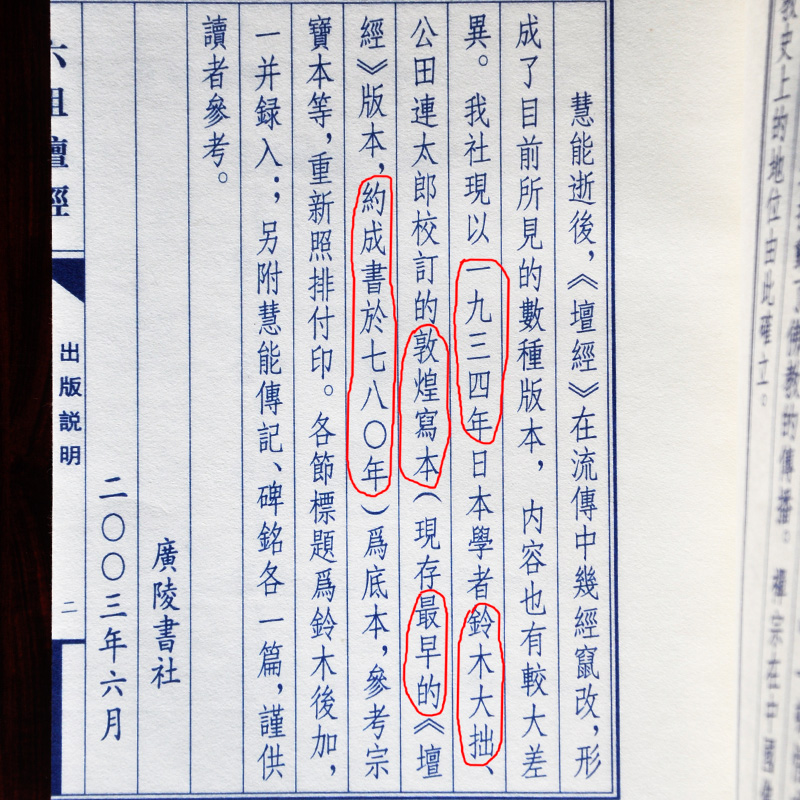 動了佛教的傳播。禪宗在中國
教史上的地位由此確立。
慧能逝後，《壇經》在流傳中幾經竄改，形
成了目前所見的數種版本，内容也有較大差
異。我社現以一九三四年日本學者鈴木大拙、
公田連太郎校訂的敦煌寫本（現存最早的《壇
經》版本，約成書於七八〇年）爲底本，參考宗
寶本等，重新照排付印。各節標題爲鈴木後加，
一并録入；另附慧能傳記、碑銘各一篇，謹供
讀者參考。
廣陵書社
二〇〇三年六月
六祖壇經
出版説明
二